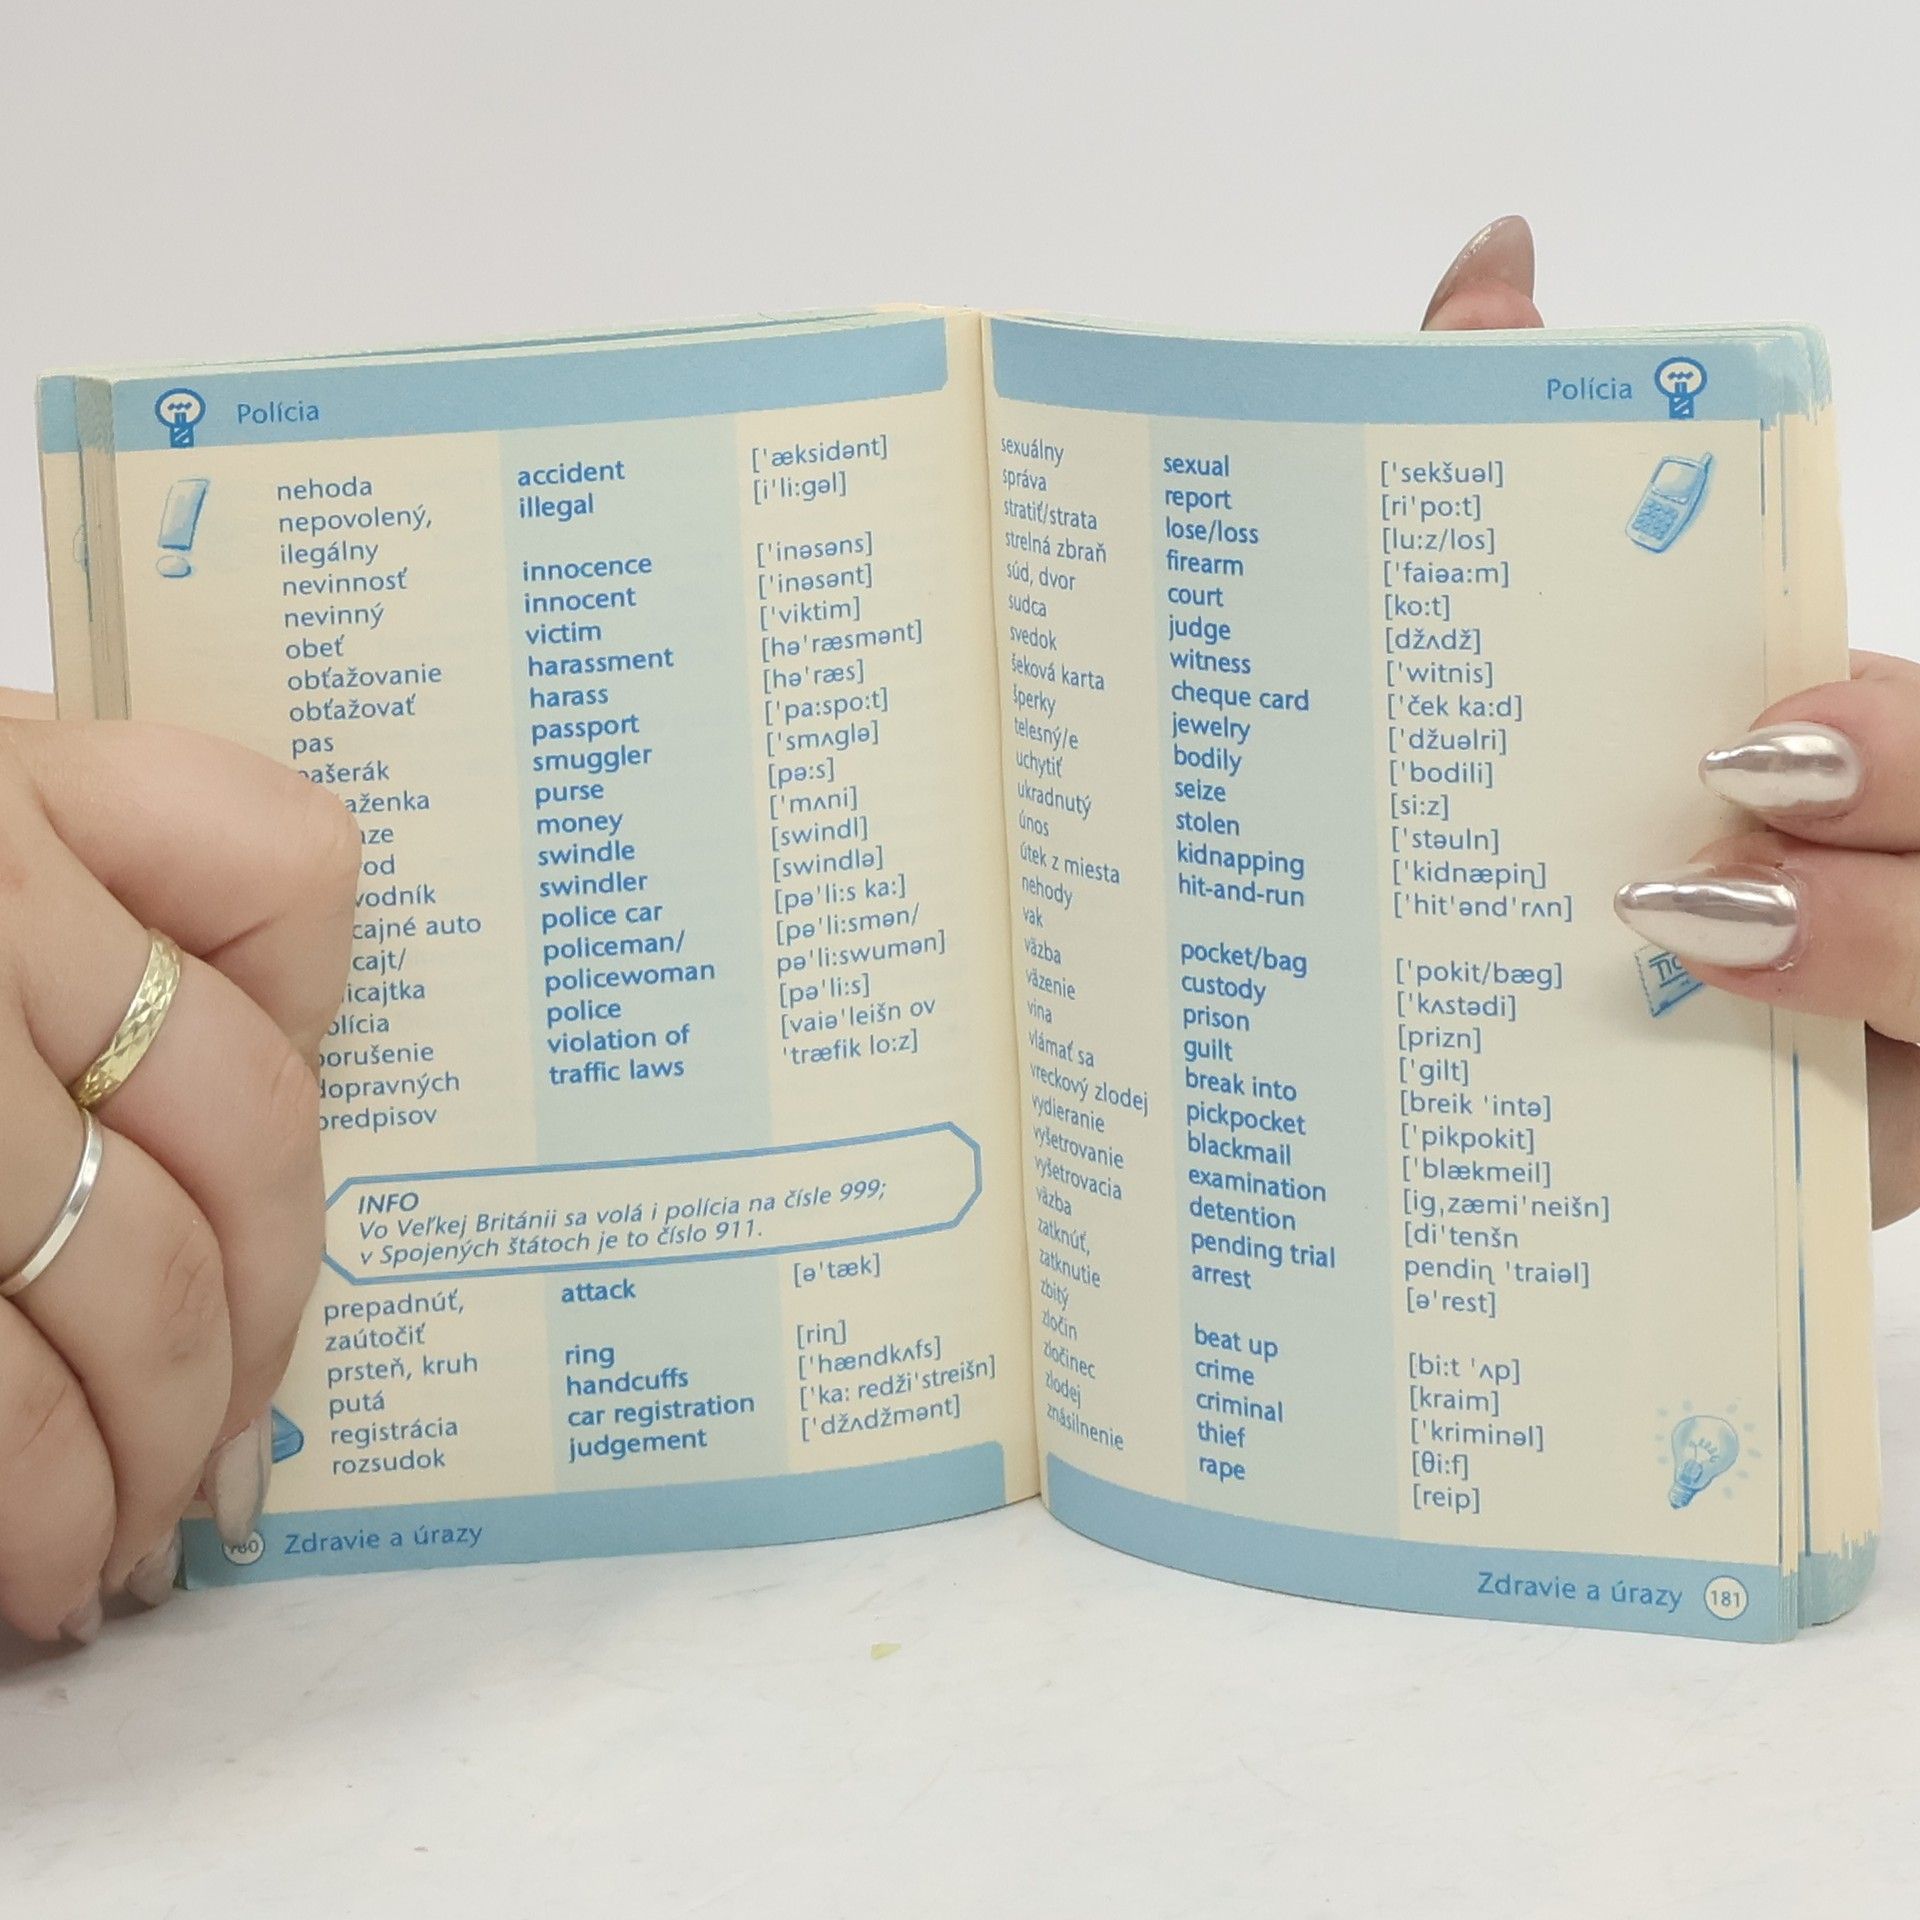 Polícia
nehoda accident ['æksidənt]
nepovolený, illegal [i'li:gəl]
ilegálny
nevinnosť innocence ['inəsəns]
nevinný innocent ['inəsənt]
obeť victim ['viktim]
obťažovanie harassment [hə'ræsmənt]
obťažovať harass [hə'ræs]
pas passport ['pa:spo:t]
ašerák smuggler ['smʌglə]
aženka purse [pə:s]
ze money ['mʌni]
od swindle [swindl]
vodník swindler [swindlə]
cajné auto police car [pə'li:s ka:]
cajt/ policeman/ [pə'li:smən/
icajtka policewoman pə'li:swumən]
olícia police [pə'li:s]
orušenie violation of [vaiə'leišn ov
dopravných traffic laws 'træfik lo:z]
predpisov
INFO
Vo Veľkej Británii sa volá i polícia na čísle 999;
v Spojených štátoch je to číslo 911.
prepadnúť, attack [ə'tæk]
zaútočiť
prsteň, kruh ring [riη]
putá handcuffs ['hændkʌfs]
registrácia car registration ['ka: redži'streišn]
rozsudok judgement ['džʌdžmənt]
Zdravie a úrazy
Polícia
sexuálny sexual ['sekšuəl]
správa report [ri'po:t]
stratiť/strata lose/loss [lu:z/los]
strelná zbraň firearm ['faiəa:m]
súd, dvor court [ko:t]
sudca judge [džʌdž]
svedok witness ['witnis]
šeková karta cheque card ['ček ka:d]
šperky jewelry ['džuəlri]
telesný/e bodily ['bodili]
uchytiť seize [si:z]
ukradnutý stolen ['stəuln]
únos kidnapping ['kidnæpiη]
útek z miesta hit-and-run ['hit'ənd'rʌn]
nehody
vak pocket/bag ['pokit/bæg]
väzba custody ['kʌstədi]
väzenie prison [prizn]
vina guilt ['gilt]
vlámať sa break into [breik 'intə]
vreckový zlodej pickpocket ['pikpokit]
vydieranie blackmail ['blækmeil]
vyšetrovanie examination [ig,zæmi'neišn]
vyšetrovacia detention [di'tenšn
väzba pending trial pendiη 'traiəl]
zatknúť, arrest [ə'rest]
zatknutie
zbitý beat up [bi:t 'ʌp]
zločin crime [kraim]
zločinec criminal ['kriminəl]
zlodej thief [θi:f]
znásilnenie rape [reip]
Zdravie a úrazy 181